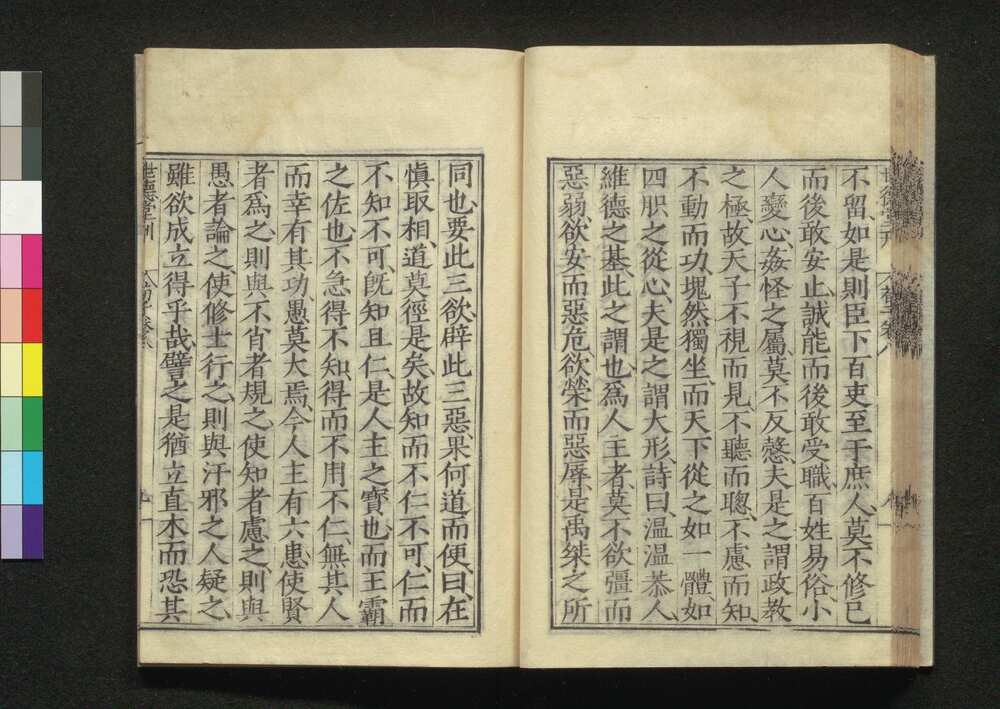 不留、如是則臣下百吏至于庶人、莫不修己
而後敢安止、誠能而後敢受職、百姓易俗、小
人變心、姦怪之屬、莫不反慤、夫是之謂政教
之極、故天子不視而見、不聽而聰、不慮而知、
不動而功、塊然獨坐而天下從之如一體、如
四胑之從心、夫是之謂大形、詩曰、溫溫恭人、
維德之基、此之謂也、爲人主者、莫不欲彊而
惡弱、欲安而惡危、欲榮而惡辱、是禹桀之所
同也、要此三欲、辟此三惡、果何道而便、曰、在
愼取相、道莫徑是矣、故知而不仁不可、仁而
不知不可、旣知且仁、是人主之寳也、而王霸
之佐也、不急得不知、得而不用不仁、無其人
而幸有其功、愚莫大焉、今人主有六患、使賢
者爲之、則與不肖者規之、使知者慮之、則與
愚者論之、使修士行之、則與汙邪之人疑之、
雖欲成立得乎哉、譬之是猶立直木而恐其
世德堂刊